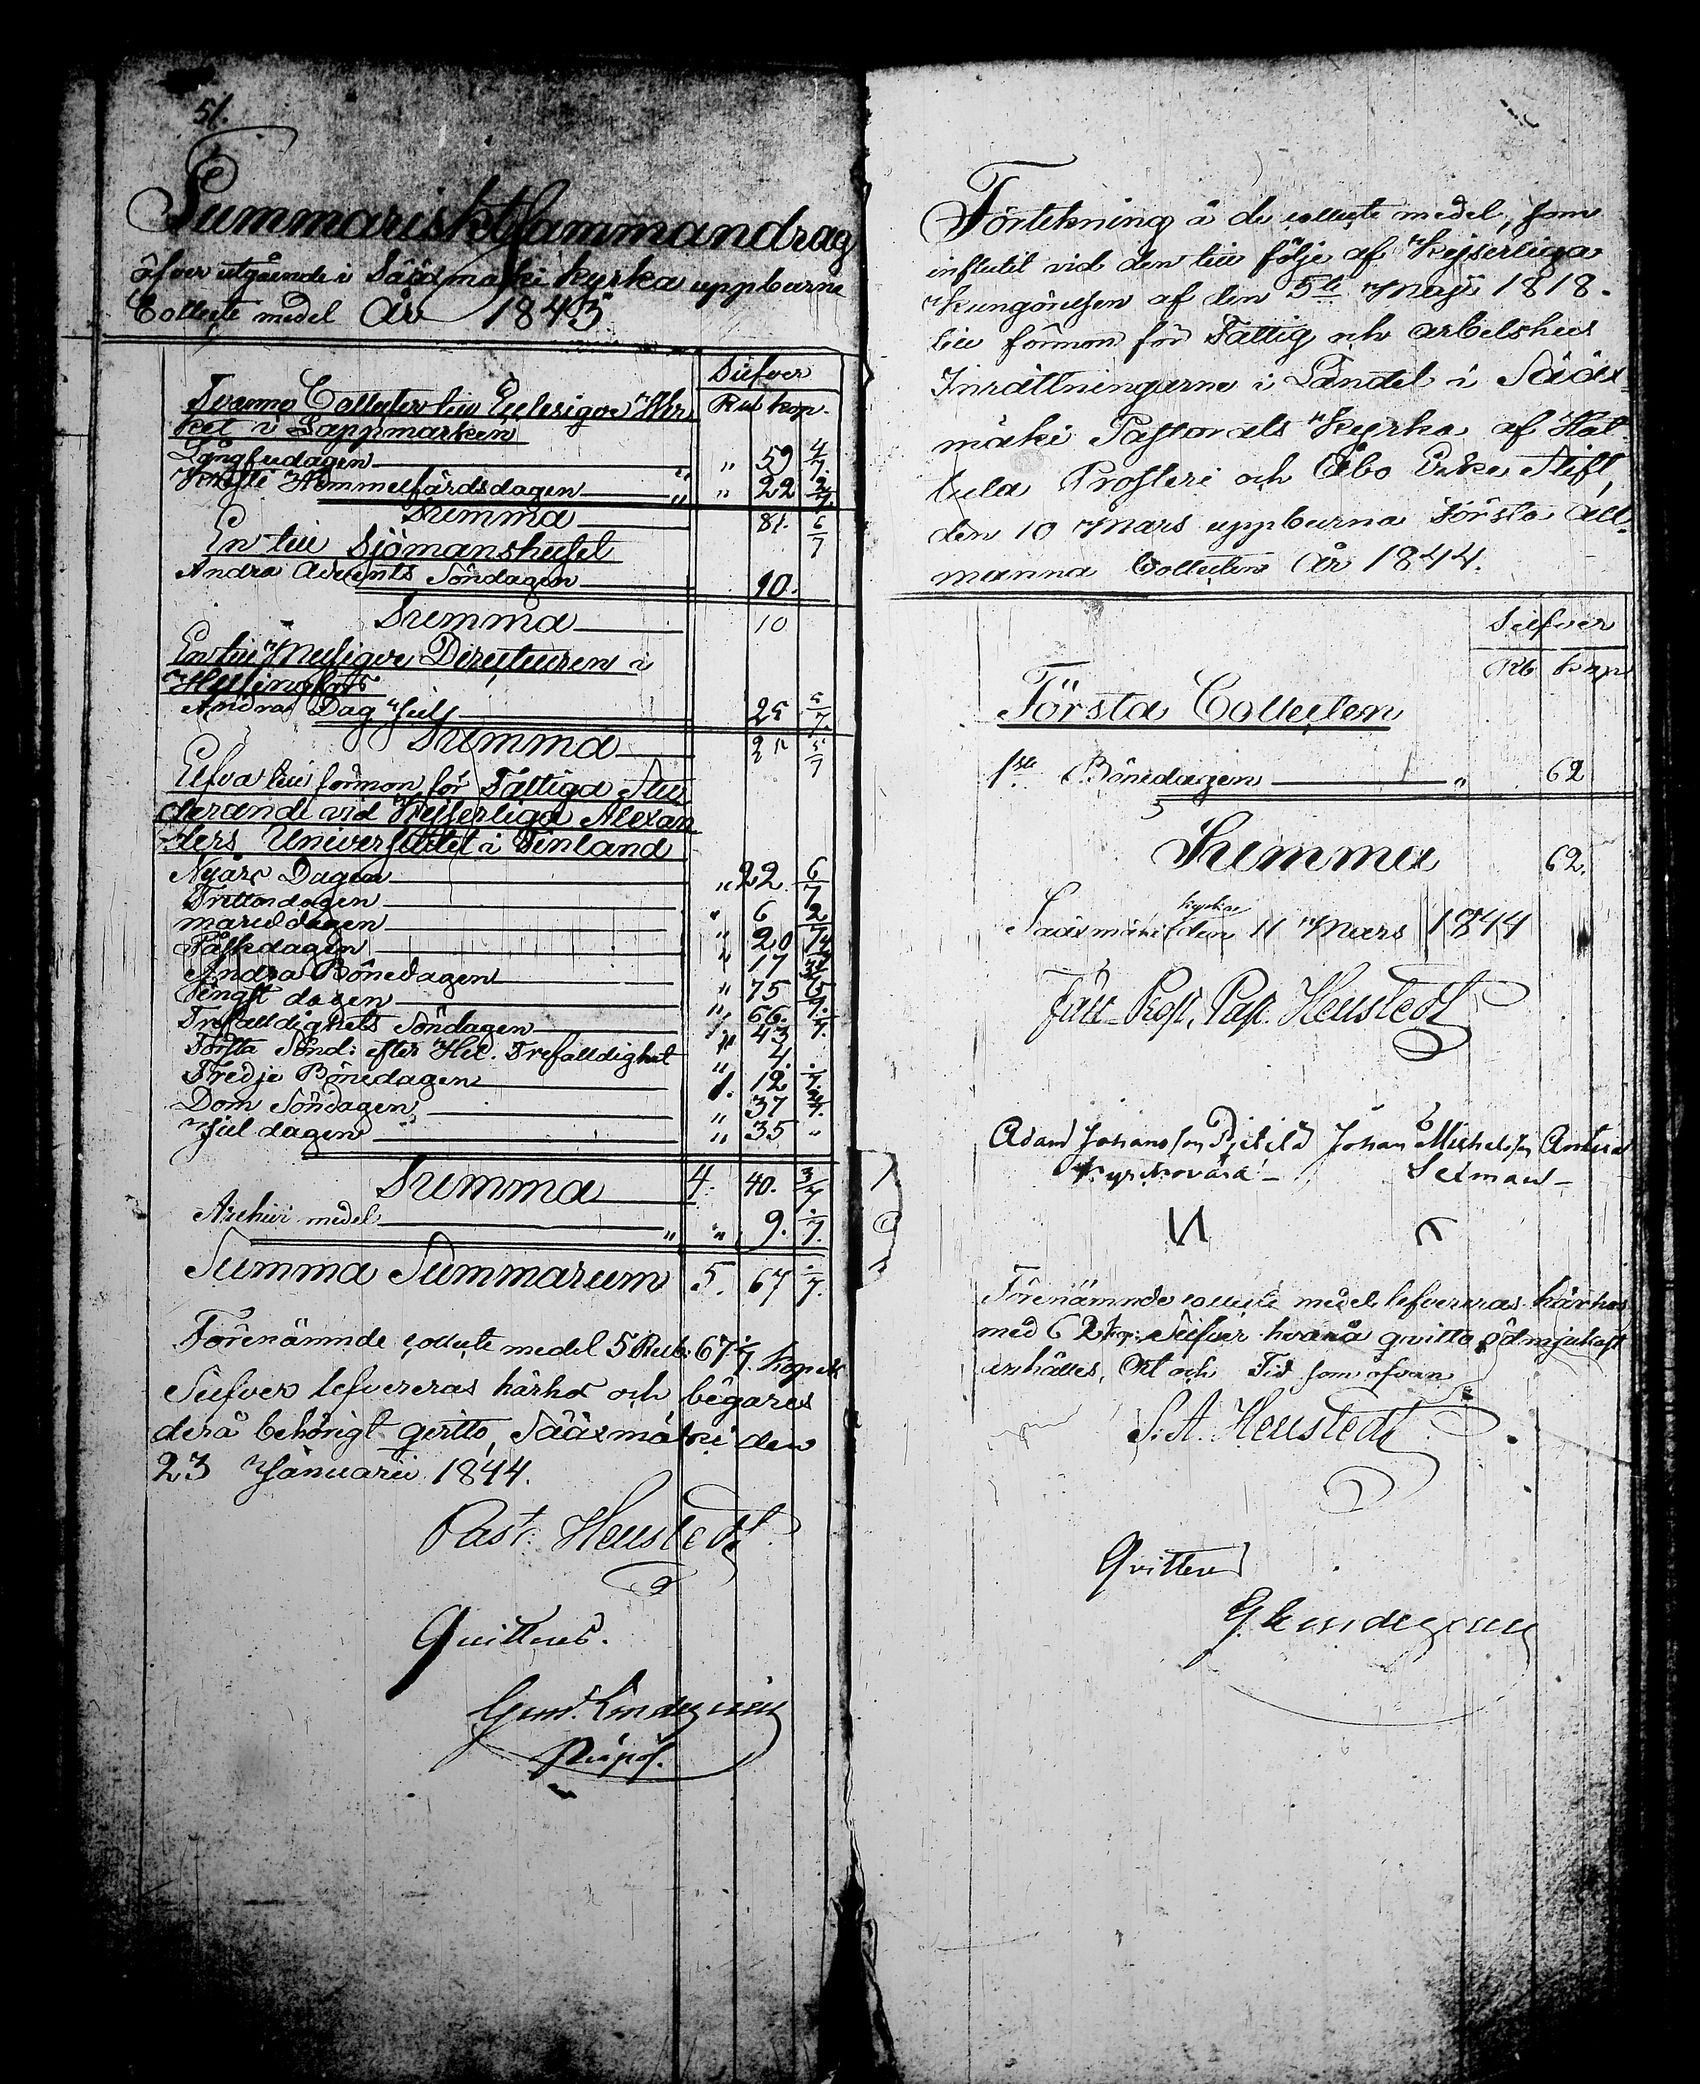 51.
Summariskt Sammandrag
öfver utgående i Sääxmäki kyrka uppburne
Collecte medel År 1843
Silfver
Rub kop.
Tvenne Collecter till Eclesigve Ver
ket i Lappmarken
Långfredagen " 59 4/7.
Kristi Himmelsfärdsdagen " 22 2/7.
Summa 81. 6/7
En till Sjömanshuset
Andra Advents Söndagen 10.
Summa 10
En till Musigve Directeuren i
Helsingfors
Andra Dag Jul 25 5/7.
Summa 25 5/7
Elfva till förmon för Fattiga Stu
derande vid Kejserliga Alexan
ders Universitetet i Finland
Nyårs Dagen " 22. 6/7
Trettondagen " 6 2/7
mariedagen " 20
Påskedagen " 17
Andra Bönedagen " 75
Pingst dagen " 66.
Trefalldighets Söndagen " 43
Första Sönd: efter Hel. Trefalldighet " 4.
Tredje Bönedagen 1. 12
Dom Söndagen " 37
Jul dagen " 35 "
Summa 4. 40. 3/7
Archivi medel " 9. ./7.
Summa Summarum 5. 67 ./7.
Förenämnde collecte medel 5 Rub: 67 ./7. kopek
Silfver lefvereras härhos och begäres
derå behörigt qvitto, Sääxmäki den
23 Januarii 1844.
Past. Hellstedt
Quitteras.
Gust. Lindegren
Präpos.
Förtekning å de collecte medel, som
influtit vid den till följe af Kejserliga
Kungörelsen af den 5te Maji 1818.
till förmon för Fattig och arbetshus
Inrättningarne i Landet i Sääx-
mäki Pastorats Kyrka af Hat-
tula Prosteri och Åbo Erke Stift,
den 10 Mars uppburna Första All-
männa Collecten År 1844.
Silfver
Rb kop
Första Collecten
1sta Bönedagen " 62
Summa 62.
Sääxmäki kyrka den 11 Mars 1844
Past. Hellstedt
Adam Johansson Johan Michelsson Anttila
Kyrkovärd Sexman
Förenämnde collecte medel lefvereras härhos
med 62 kop: Silfver hvarå qvitto ödmjukast
anhålles, Ort och Tid som ofvan
S. A. Hellstedt
Qvitteras
G. Lindegren